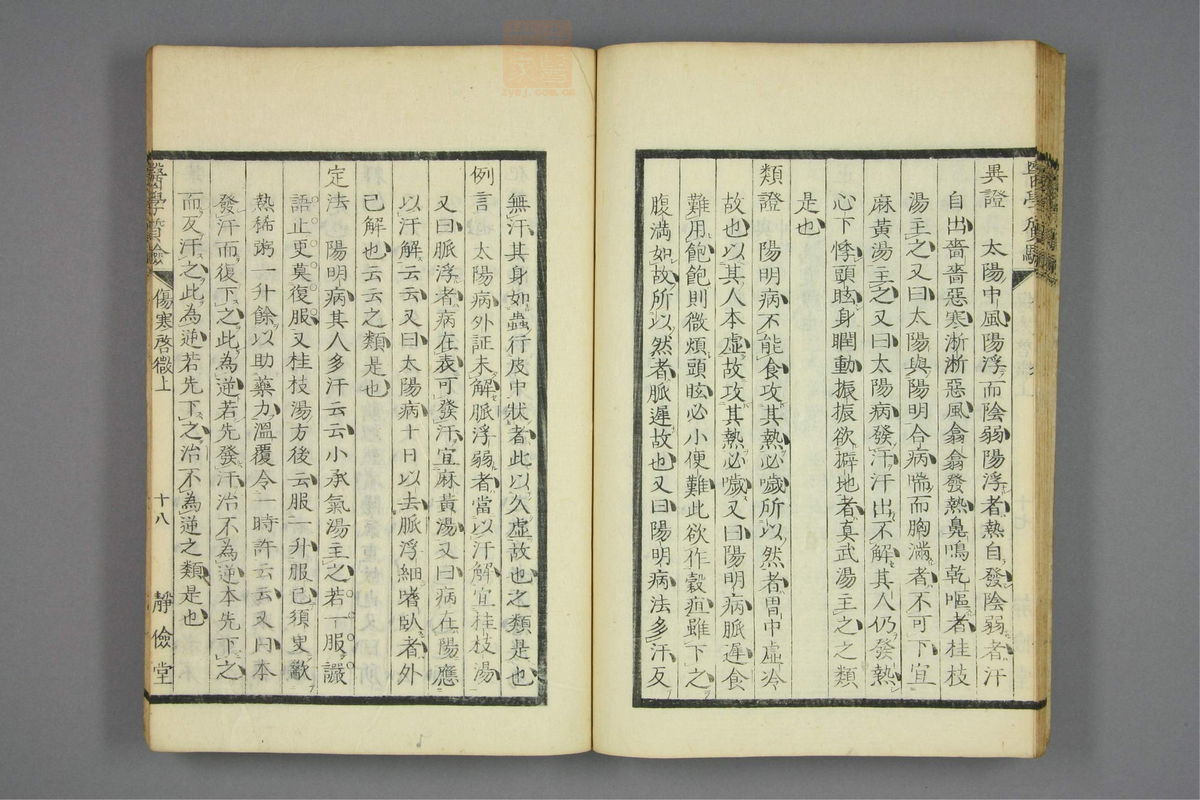 異證 太陽中風陽浮而陰弱陽浮者熱自發陰弱者汗
自出嗇嗇惡寒淅淅惡風翕翕發熱鼻鳴乾嘔者桂枝
湯主之又曰太陽與陽明合病喘而胸滿者不可下宜
麻黃湯主之又曰太陽病發汗汗出不解其人仍發熱
心下悸頭眩身瞤動振振欲擗地者真武湯主之之類
是也
類證 陽明病不能食攻其熱必噦所以然者胃中虛冷
故也以其人本虛故攻其熱必噦又曰陽明病脈遲食
難用飽飽則微煩頭眩必小便難此欲作穀疸雖下之
腹滿如故所以然者脈遲故也又曰陽明病法多汗反
無汗其身如蟲行皮中狀者此以久虛故也之類是也
例言 太陽病外証未解脈浮弱者當以汗解宜桂枝湯
又曰脈浮者病在表可發汗宜麻黃湯又曰病在陽應
以汗解云云又曰太陽病十日以去脈浮細嗜臥者外
已解也云云之類是也
定法 陽明病其人多汗云云小承氣湯主之若一服譫
語止更莫復服又桂枝湯方後云服一升服已須臾歠
熱稀粥一升餘以助藥力溫覆令一時許云云又曰本
發汗而復下之此為逆若先發汗治不為逆本先下之
而反汗之此為逆若先下之治不為逆之類是也
醫學質驗
傷寒啓微上
十八
靜儉堂
zyej.com.cn